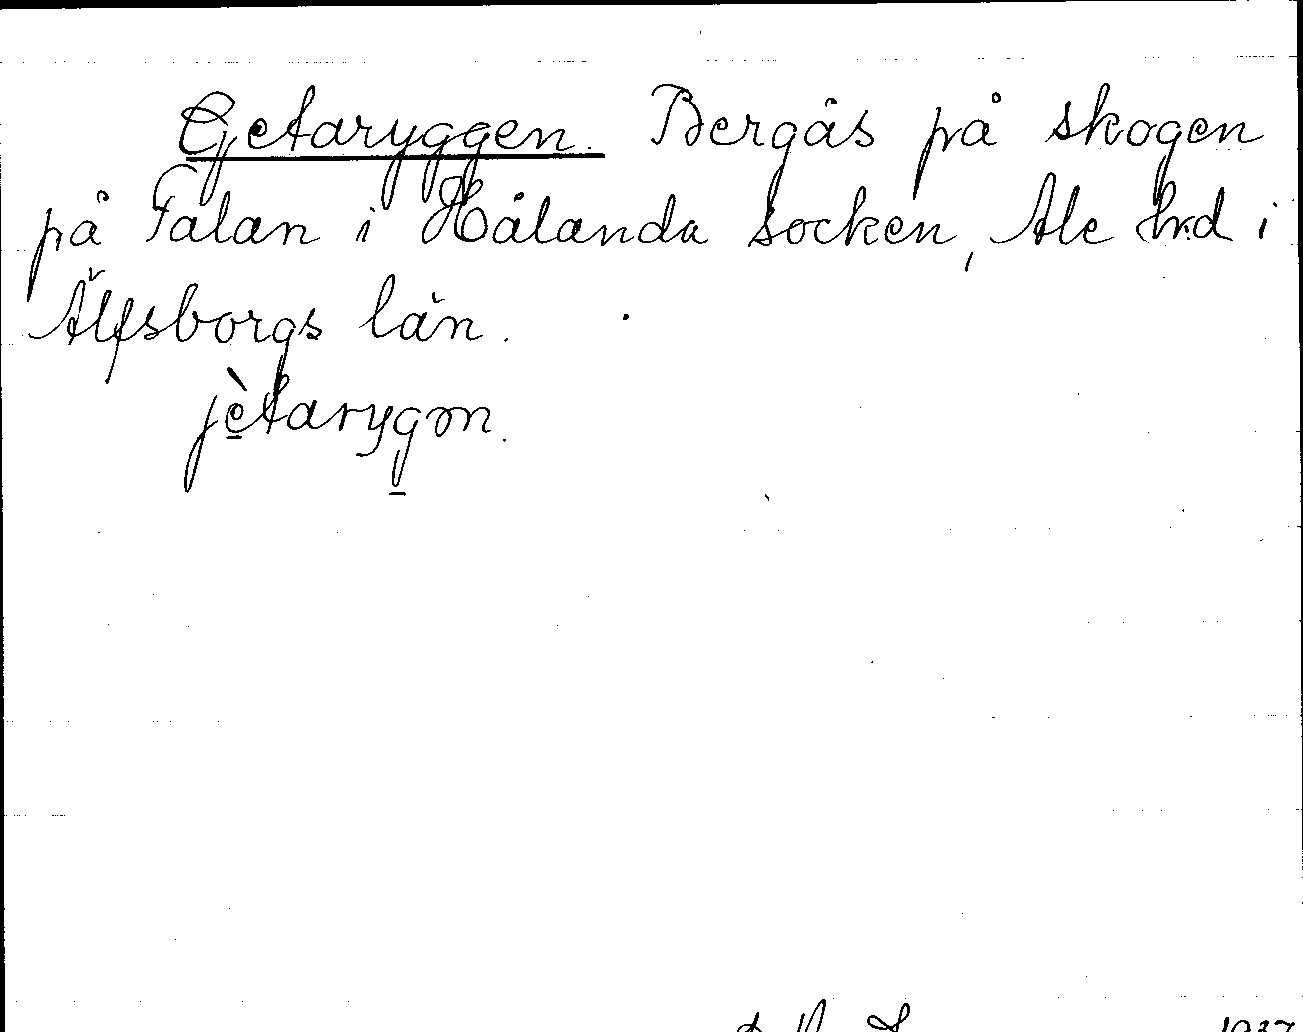 Getaryggen. Bergås på skogen
på Falan i Hålanda socken, Ale hrd i
Älfsborgs län.
jètarygən.